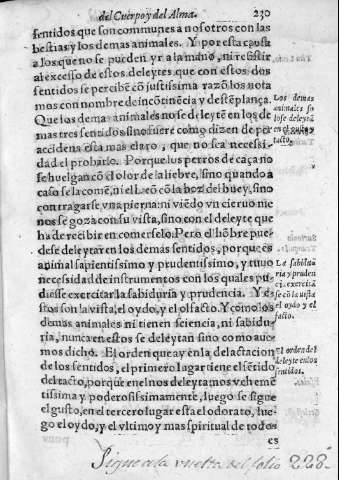 del Cuerpo y del Alma. 230
sentidos que son communes a nosotros con las
bestias y los demas animales. Y por esta causa
a los que no se pueden yr a la mano, ni resistir
al excesso de estos deleytes que con estos dos
sentidos se percibẽ cõ justissima razõ los nota
mos con nombre de incõtinẽcia y destẽplança.
Que los demas animales no se deleytẽ en los de
mas tres sentidos sino fuere como dizen de per
accidens esta mas claro, que no sea necessi-
dad el probarlo. Porque los perros de caça no
se huelgan cõ el olor de la liebre, sino quando a
caso se la comẽ, ni el Leõ cõ la boz del buey, sino
con tragarse vna pierna: ni viẽdo vn cieruo me
nos se goza con su vista, sino con el deleyte que
ha de recibir en comerselo. Pero el hõbre pue-
de se deleytar en los demas sentidos, porque es
animal sapientissimo y prudentissimo, y tuuo
necessidad de instrumentos con los quales pu-
diesse exercitar la sabiduria y prudencia. Y es
tos son la vista, el oydo, y el olfacto. Y como los
demas animales ni tienen sciencia, ni sabidu-
ria, nunca en estos se deleytan sino como aue-
mos dicho. El orden que ay en la delactacion
de los sentidos, el primero lugar tiene el sẽtido
del tacto, porque en el nos deleytamos vehemẽ
tissima y poderosissimamente, luego se sigue
el gusto, en el tercero lugar esta el odorato, lue-
go el oydo, y el vltimo y mas spiritual de todos
es
Los demas
animales so
lo se deleytã
en el gusto y
tacto.
La sabidu
ria y pruden
cia exercita
se cõ la vista
el oydo y el
facto.
El orden del
deleyte en los
sentidos.
Sigue a la vuelta del folio 228.